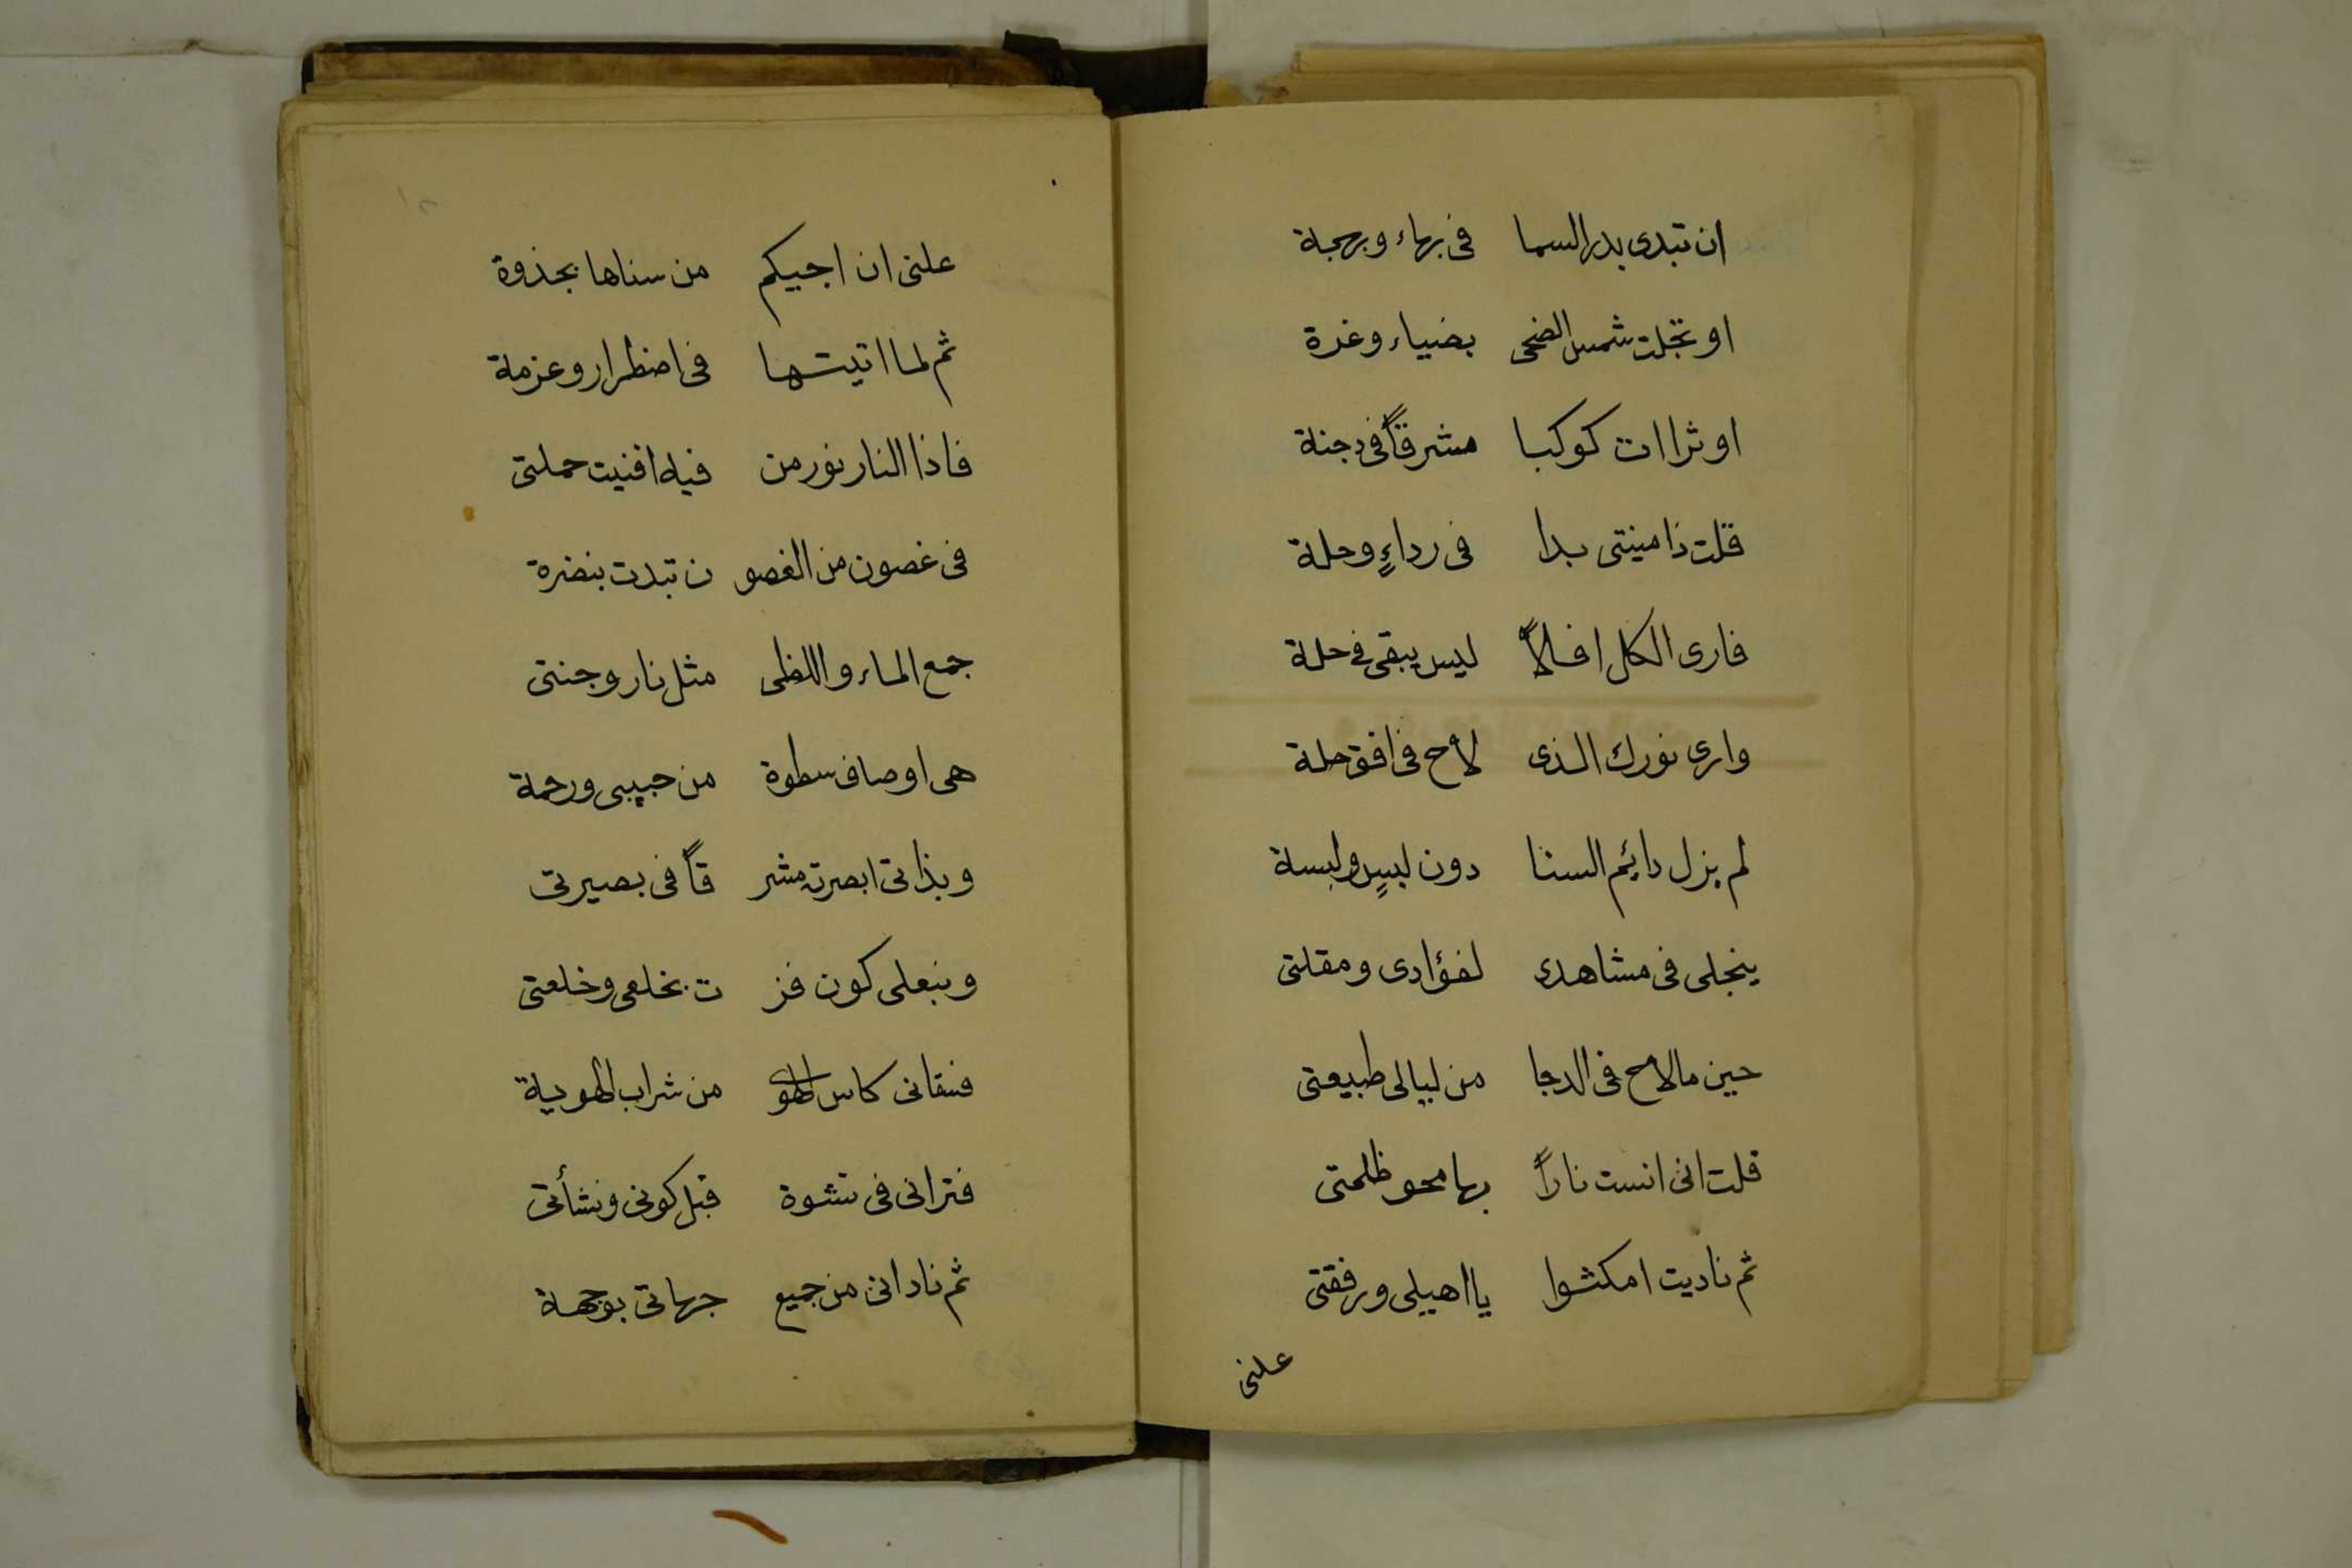 ان تبدى بدر السما في بهاء وبهجة
او تجلت شمس الضحى بضياء وغرة
او ثراات كوكبا مشرقاً في دجنة
قلت ذا منيتى بدا في رداءٍ وحلة
فارى الكل افلاً ليس يبقى في حلة
وارى نورك الذى لاح في افق حلة
لم يزل دايم السنا دون لبسٍ ولبسة
ينجلى في مشاهدى لفؤادى ومقلتى
حين ما لاح في الدجا من ليالى طبيعتى
قلت انى انست ناراً بها محو ظلمتى
ثم ناديت امكثوا يا اهيلى ورفقتى
علنى
علنى ان اجيكم من سناها بجذوة
ثم لما اتيتها في اضطرار وعزمة
فاذا النار نور من فيه افنيت حملتى
في غصون من الغصو ن تبدت بنضرة
جمع الماء واللظى مثل نار وجنتى
هى اوصاف سطوة من حبيبى ورحمة
وبذاتى ابصرته مشر قاً في بصيرتى
وبنعلى كون فز ت بخلعى وخلعتى
فسقانى كاس الهوى من شراب الهوية
فترانى في نشوة قبل كونى ونشأتى
ثم نادانى من جميع جهاتى بوجهة